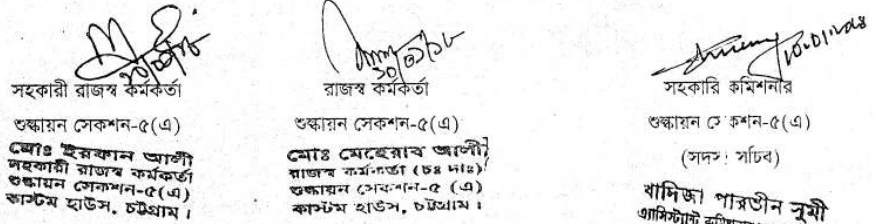 ১০/০১/১৮
১০/০১/১৮
১০/০১/২০১৮
সহকারী রাজস্ব কর্মকর্তা
শুল্কায়ন সেকশন-৫(এ)
মোঃ ইরফান আলী
সহকারী রাজস্ব কর্মকর্তা
শুল্কায়ন সেকশন-৫(এ)
কাস্টম হাউস, চট্টগ্রাম।
রাজস্ব কর্মকর্তা
শুল্কায়ন সেকশন-৫(এ)
মোঃ মেহেরাব আলী
রাজস্ব কর্মকর্তা (চঃ দাঃ)
শুল্কায়ন সেকশন-৫ (এ)
কাস্টম হাউস, চট্টগ্রাম।
সহকারি কমিশনার
শুল্কায়ন সেকশন-৫(এ)
(সদস্য সচিব)
খাদিজা পারভীন সুমী